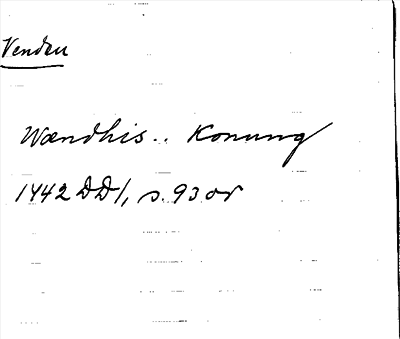 Venden
Wændhis.. Konung
1442 DD1, s. 93 or